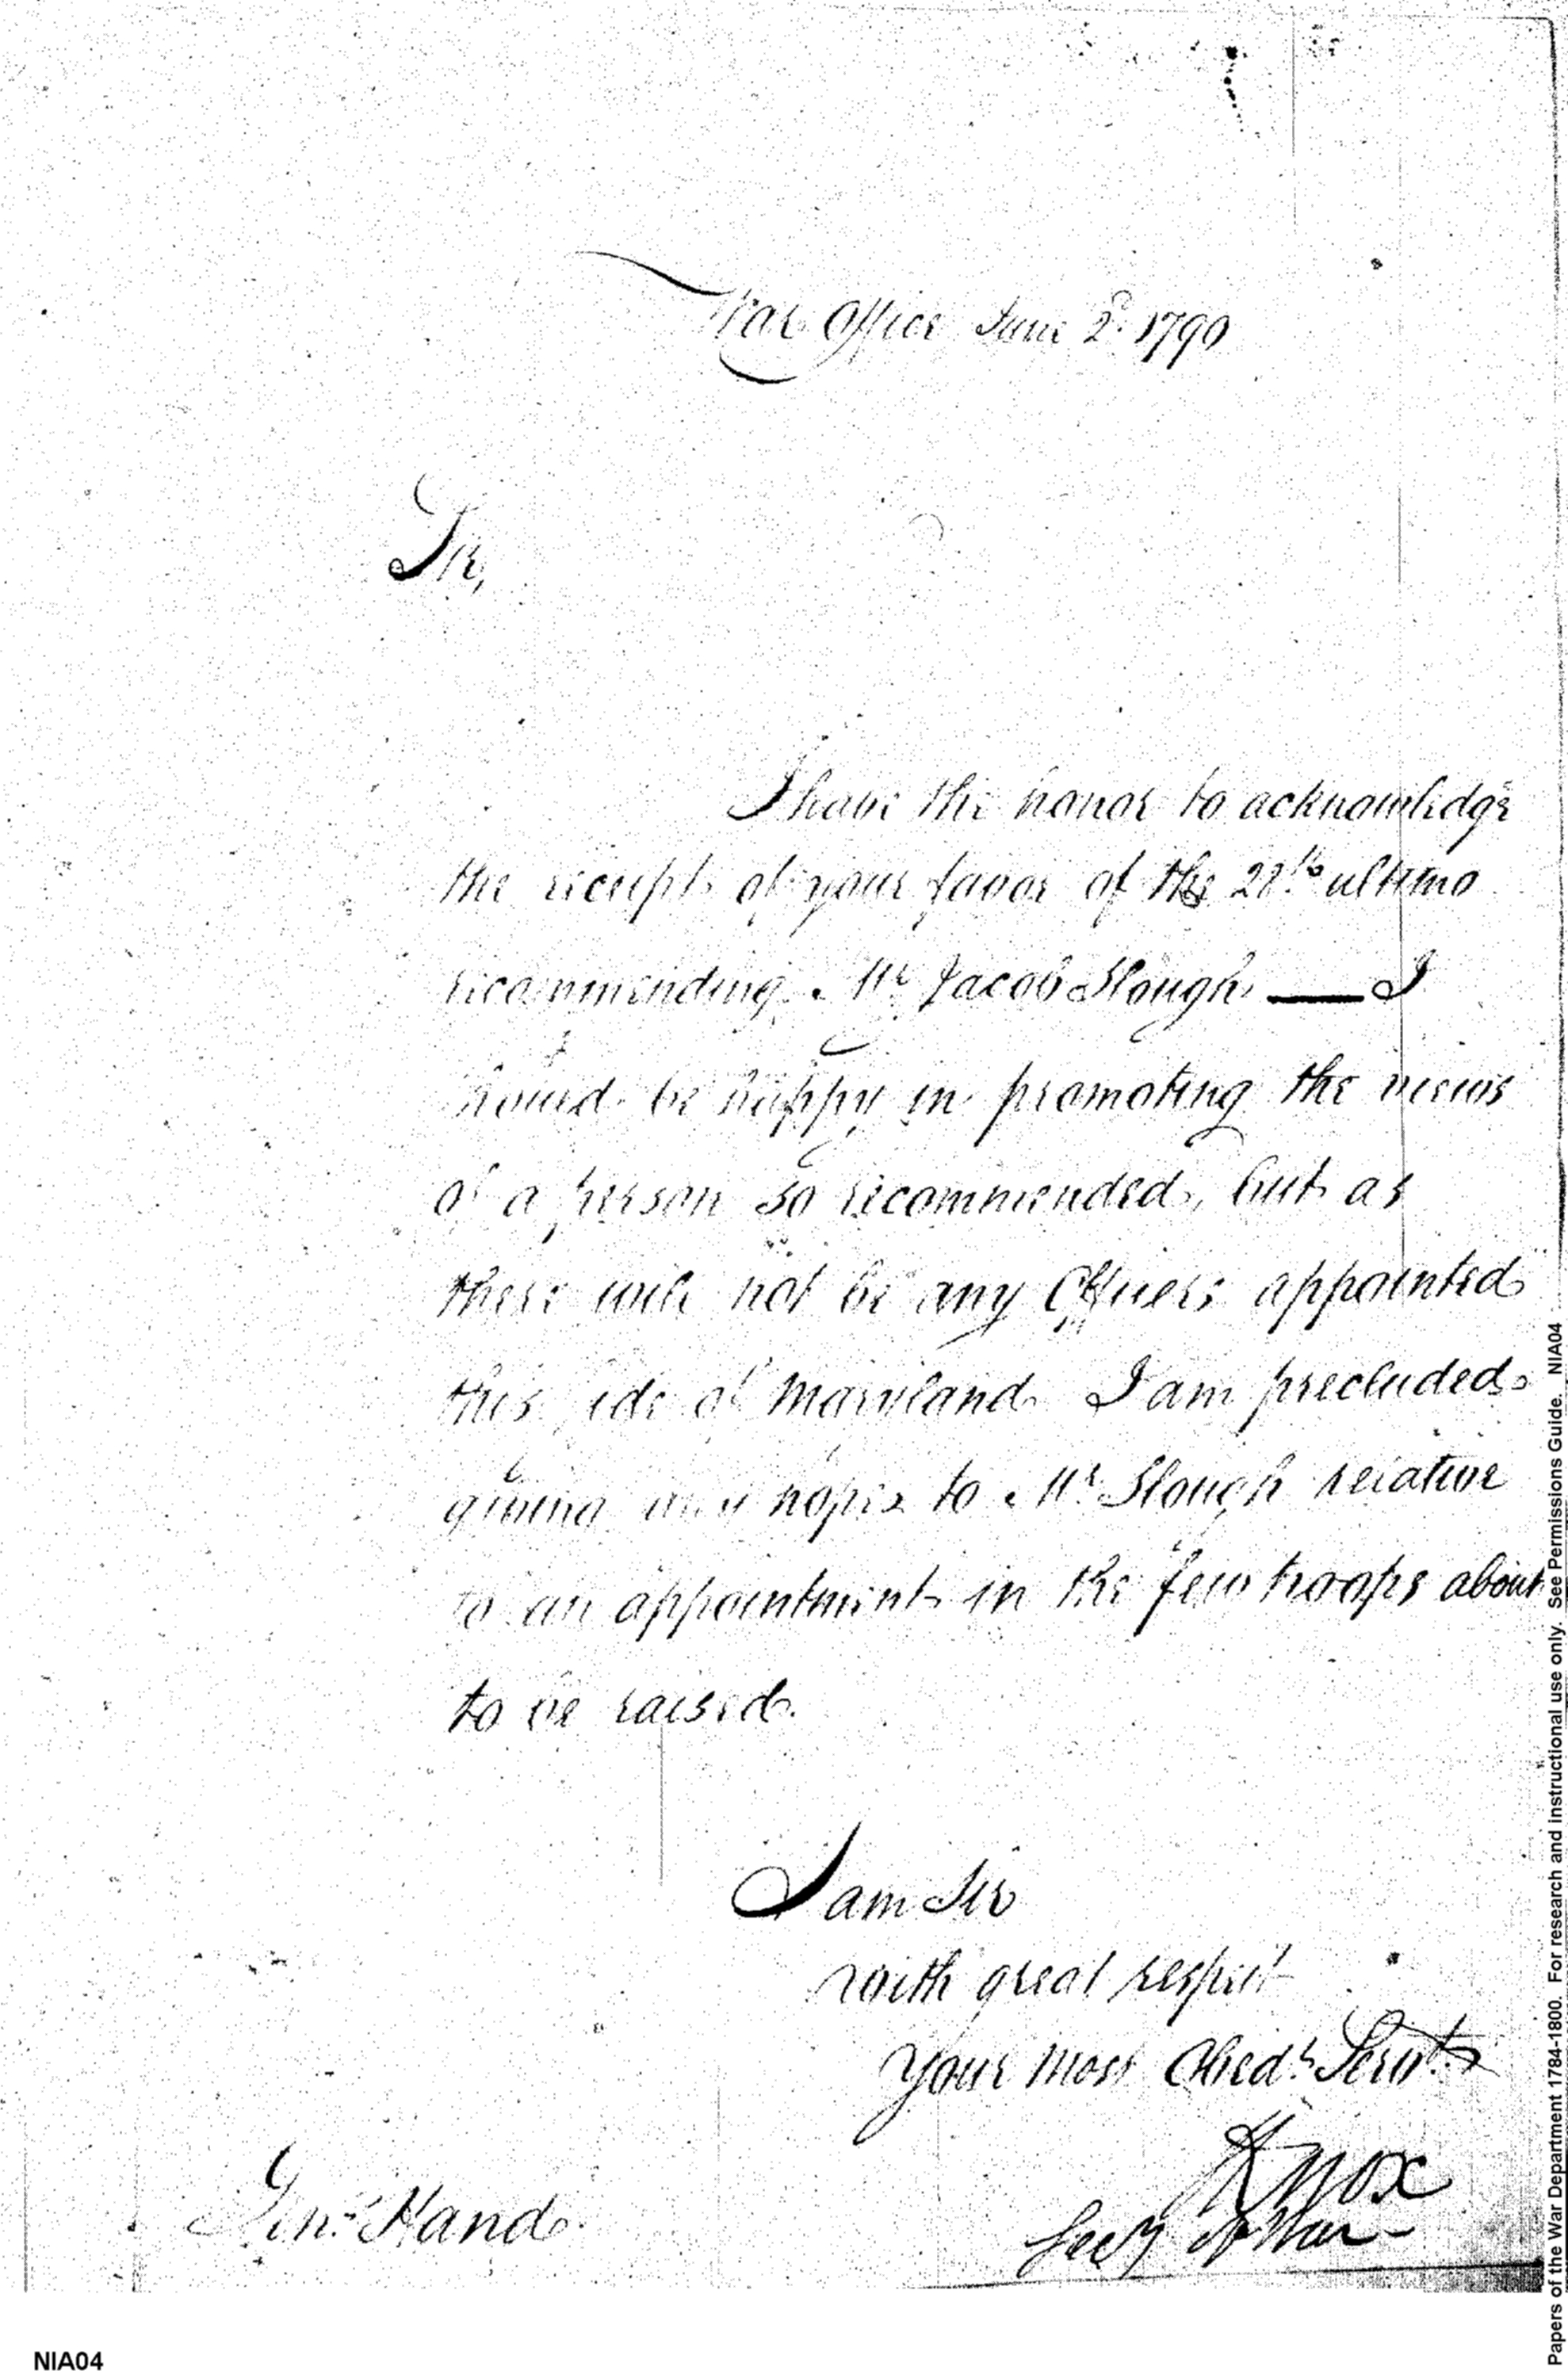 War Office June 2d. 1790
Sir,
I have the honor to acknowledge
the receipt of your favor of the ultimo
recommending Mr Jacob Slough — I
would be happy in promoting the views
of a person so recommended, but as
there will not be any Officers appointed
this side of Maryland I am precluded
giving any hopes to Mr Slough relative
to an appointment in the few troops about
to be raised.
I am Sir
with great respect
Your most Obedt Servt
HKnox
Secy of War
Genl Hand
NIA04
Papers of the War Department 1784-1800. For research and instructional use only. See Permissions Guide. NIA04